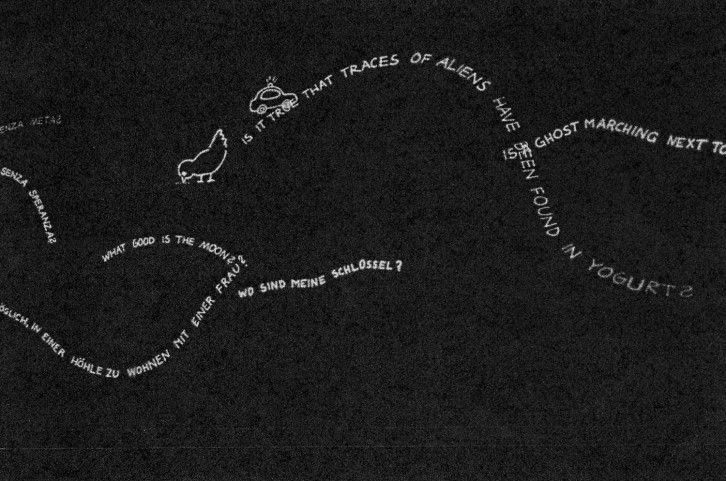 IS IT TRUE THAT TRACES OF ALIENS HAVE BEEN FOUND IN YOGURT?
IS A GHOST MARCHING NEXT TO
ENZA META?
SENZA SPERANZA?
WHAT GOOD IS THE MOON?
ÖGLICH, IN EINER HÖHLE ZU WOHNEN MIT EINER FRAU?
WO SIND MEINE SCHLÜSSEL?